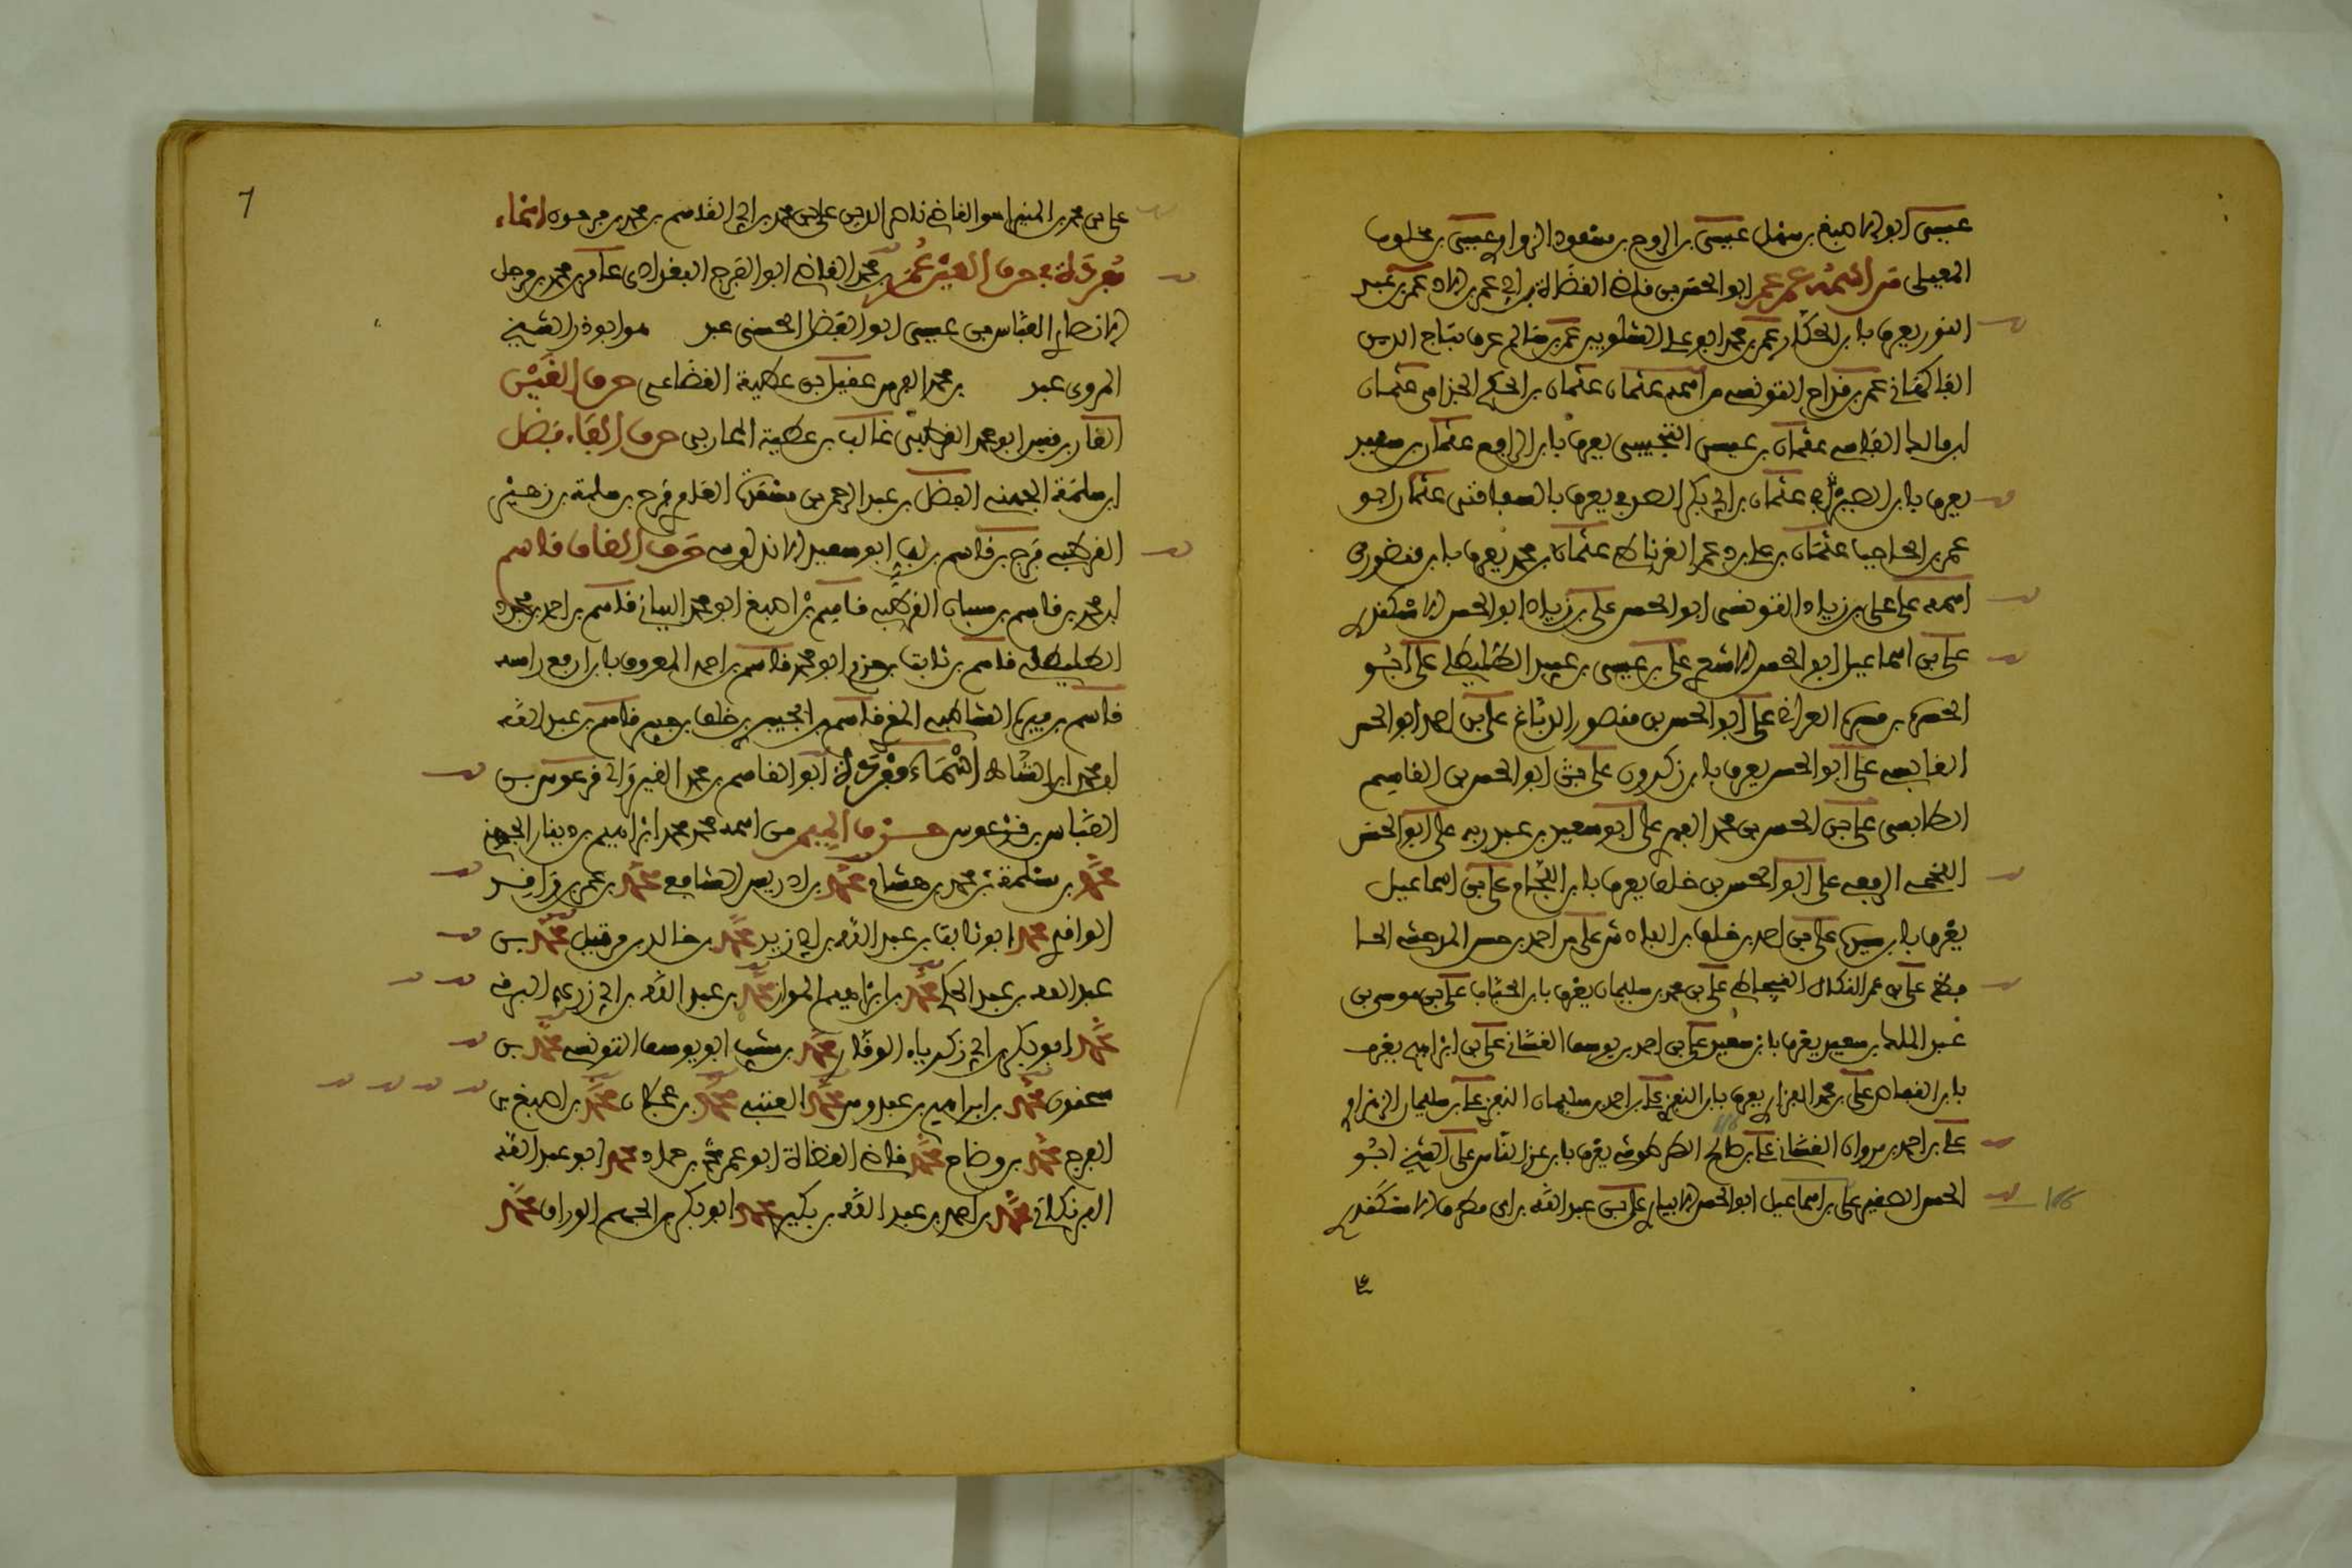 عيسى ابو الاصبغ بن سهل عيسى بن الروح بن مسعود الزواوي عيسى بن مخلوف
المغيلي من اسمه عمر عمر ابو الحسن بن قاضي القضاة بن ابي عمر عمر بن عبد
النور يعرف بابن الحكار عمر بن محمد ابو علي الشلوبين عمر بن سالم عرف بتاج الدين
الفاكهاني عمر بن قداح التونسي من اسمه عثمان عثمان بن الحكم الجذامي عثمان
بن مالك الفاسي عثمان بن عيسى التجيبي يعرف بابن ارافع عثمان بن سعيد
يعرف بابن الصيرفي عثمان بن ابي بكر الصدفي يعرف بالسفاقسي عثمان ابو
عمر بن الحاجب عثمان بن علي بن دعمر الغرناطي عثمان بن محمد يعرف بابن منظور من
اسمه علي علي بن زياد التونسي ابو الحسن علي بن زياد ابو الحسن الاسكندري
علي بن اسماعيل ابو الحسن الاشعري علي بن عيسى بن عبيد الطليطلي علي ابو
الحسن بن ميسرة العراقي علي ابو الحسن بن منصور الدباغ علي بن احمد ابو الحسن
القابسي علي ابو الحسن يعرف بابن زكرون علي ابو الحسن بن القاسم
الطابثي علي بن الحسن بن محمد الفهري علي ابو سعيد بن عبد ربه علي ابو الحسن
اللخمي الربعي علي ابو الحسن بن خلف يعرف بابن اللجام علي بن اسماعيل
يعرف بابن سيده علي بن احمد بن خلف بن الباذش علي بن احمد بن حسن المذحجي
علي بن عمر القيجاطي علي بن محمد بن سليمان يعرف بابن الجياب علي بن موسى بن
عبد الملك بن سعيد يعرف بابن سعيد علي بن احمد بن يوسف الغساني علي بن ابراهيم يعرف
بابن القصاص علي بن محمد الفزاري يعرف بابن النفزي علي بن احمد بن سليمان النفزي علي بن سليمان الزهراوي
علي بن احمد بن مروان الغساني علي بن صالح الطرطوشي يعرف بابن عز الناس علي الشيخ ابو
الحسن الصغير علي بن اسماعيل ابو الحسن الابياري علي بن عبد الله بن ابي مطرف الاسكندري
علي
7
علي بن محمد بن المنير اخو القاضي ناصر الدين علي بن محمد بن ابي القاسم بن محمد بن فرحون اسماء
مفردة في حرف العين عمر بن محمد القاضي ابو الفرج البغدادي عامر بن محمد بن مرجل
الانصاري العباس بن عيسى ابو الفضل الحسني عبد هو ابو ذر الشيخ
الهروي عبد بن محمد الفهري عقيل بن عطية القضاعي حرف الغين
الغاز بن قيس ابو محمد القرطبي غالب بن عطية المحاربي حرف الفاء فضل
ابن سلمة الجهني الفضل بن عبد الرحمن بن مسعدة العامري فرج بن سلمة بن زهير
القرطبي فرج بن قاسم بن لب ابو سعيد الاندلسي حرف القاف قاسم
ابن محمد بن قاسم بن سيار القرطبي قاسم بن اصبغ ابو محمد البياني قاسم بن احمد بن جحدر
الطليطلي قاسم بن ثابت بن حزم ابو محمد قاسم بن احمد المعروف بابن ارفع راسه
قاسم بن فيره الشاطبي المقرئ قاسم بن خلف بن جبير قاسم بن عبد الله
ابو محمد ابن الشاط اسماء مفردة ابو القاسم بن محمد القيرواني قرعوس بن
العباس بن قرعوس حرف الميم من اسمه محمد محمد بن ابراهيم بن دينار الجهني
محمد بن سلمة بن محمد بن هشام محمد بن ادريس الشافعي محمد بن عمر بن واقد
الواقدي محمد ابو ثابت بن عبد الله بن ابي زيد محمد بن خالد بن مرتنيل محمد بن
عبد الله بن عبد الحكم محمد بن ابراهيم المواز محمد بن عبد الله بن ابي زرعة البرقي
محمد ابو بكر بن ابي زكرياء الوقار محمد بن شبيب ابو يوسف التونسي محمد بن
سحنون محمد بن ابراهيم بن عبدوس محمد العتبي محمد بن عجلان محمد بن اصبغ بن
الفرج محمد بن وضاح محمد قاضي القضاة ابو عمر محمد بن حماد محمد ابو عبد الله
البرنكاني محمد بن احمد بن عبد الله بن بكير محمد ابو بكر بن الجهم الوراق محمد